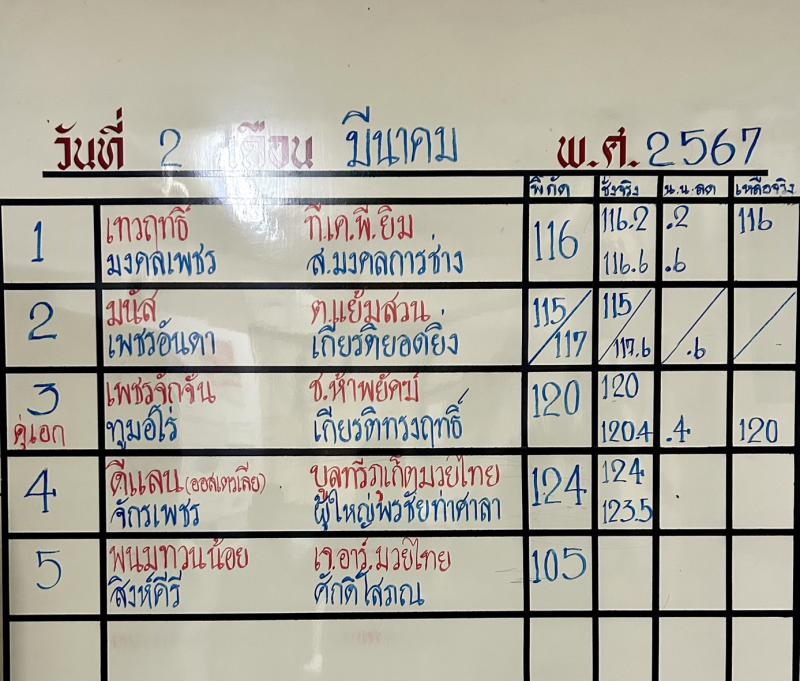 วันที่ 2 เดือน มีนาคม พ.ศ. 2567
พิกัด ชั่งจริง น.น.ลด เหลือจริง
1 เทวฤทธิ์ ที.เค.พี.ยิม 116 116.2 .2 116
มงคลเพชร ส.มงคลการช่าง 116.6 .6
2 มนัส ต.แย้มสวน 115/117 115/117.6 /.6 /
เพชรอันดา เกียรติยอดยิ่ง
3 เพชรจักจั่น ช.ห้าพยัคฆ์ 120 120
คู่เอก ทูมอโร่ เกียรติทรงฤทธิ์ 120.4 .4 120
4 ดีแลน (ออสเตรเลีย) บูลทรีภูเก็ตมวยไทย 124 124
จักรเพชร ผู้ใหญ่พรชัยท่าศาลา 123.5
5 พนมทวนน้อย เจ.อาร์.มวยไทย 105
สิงห์คีรี ศักดิ์โสภณ